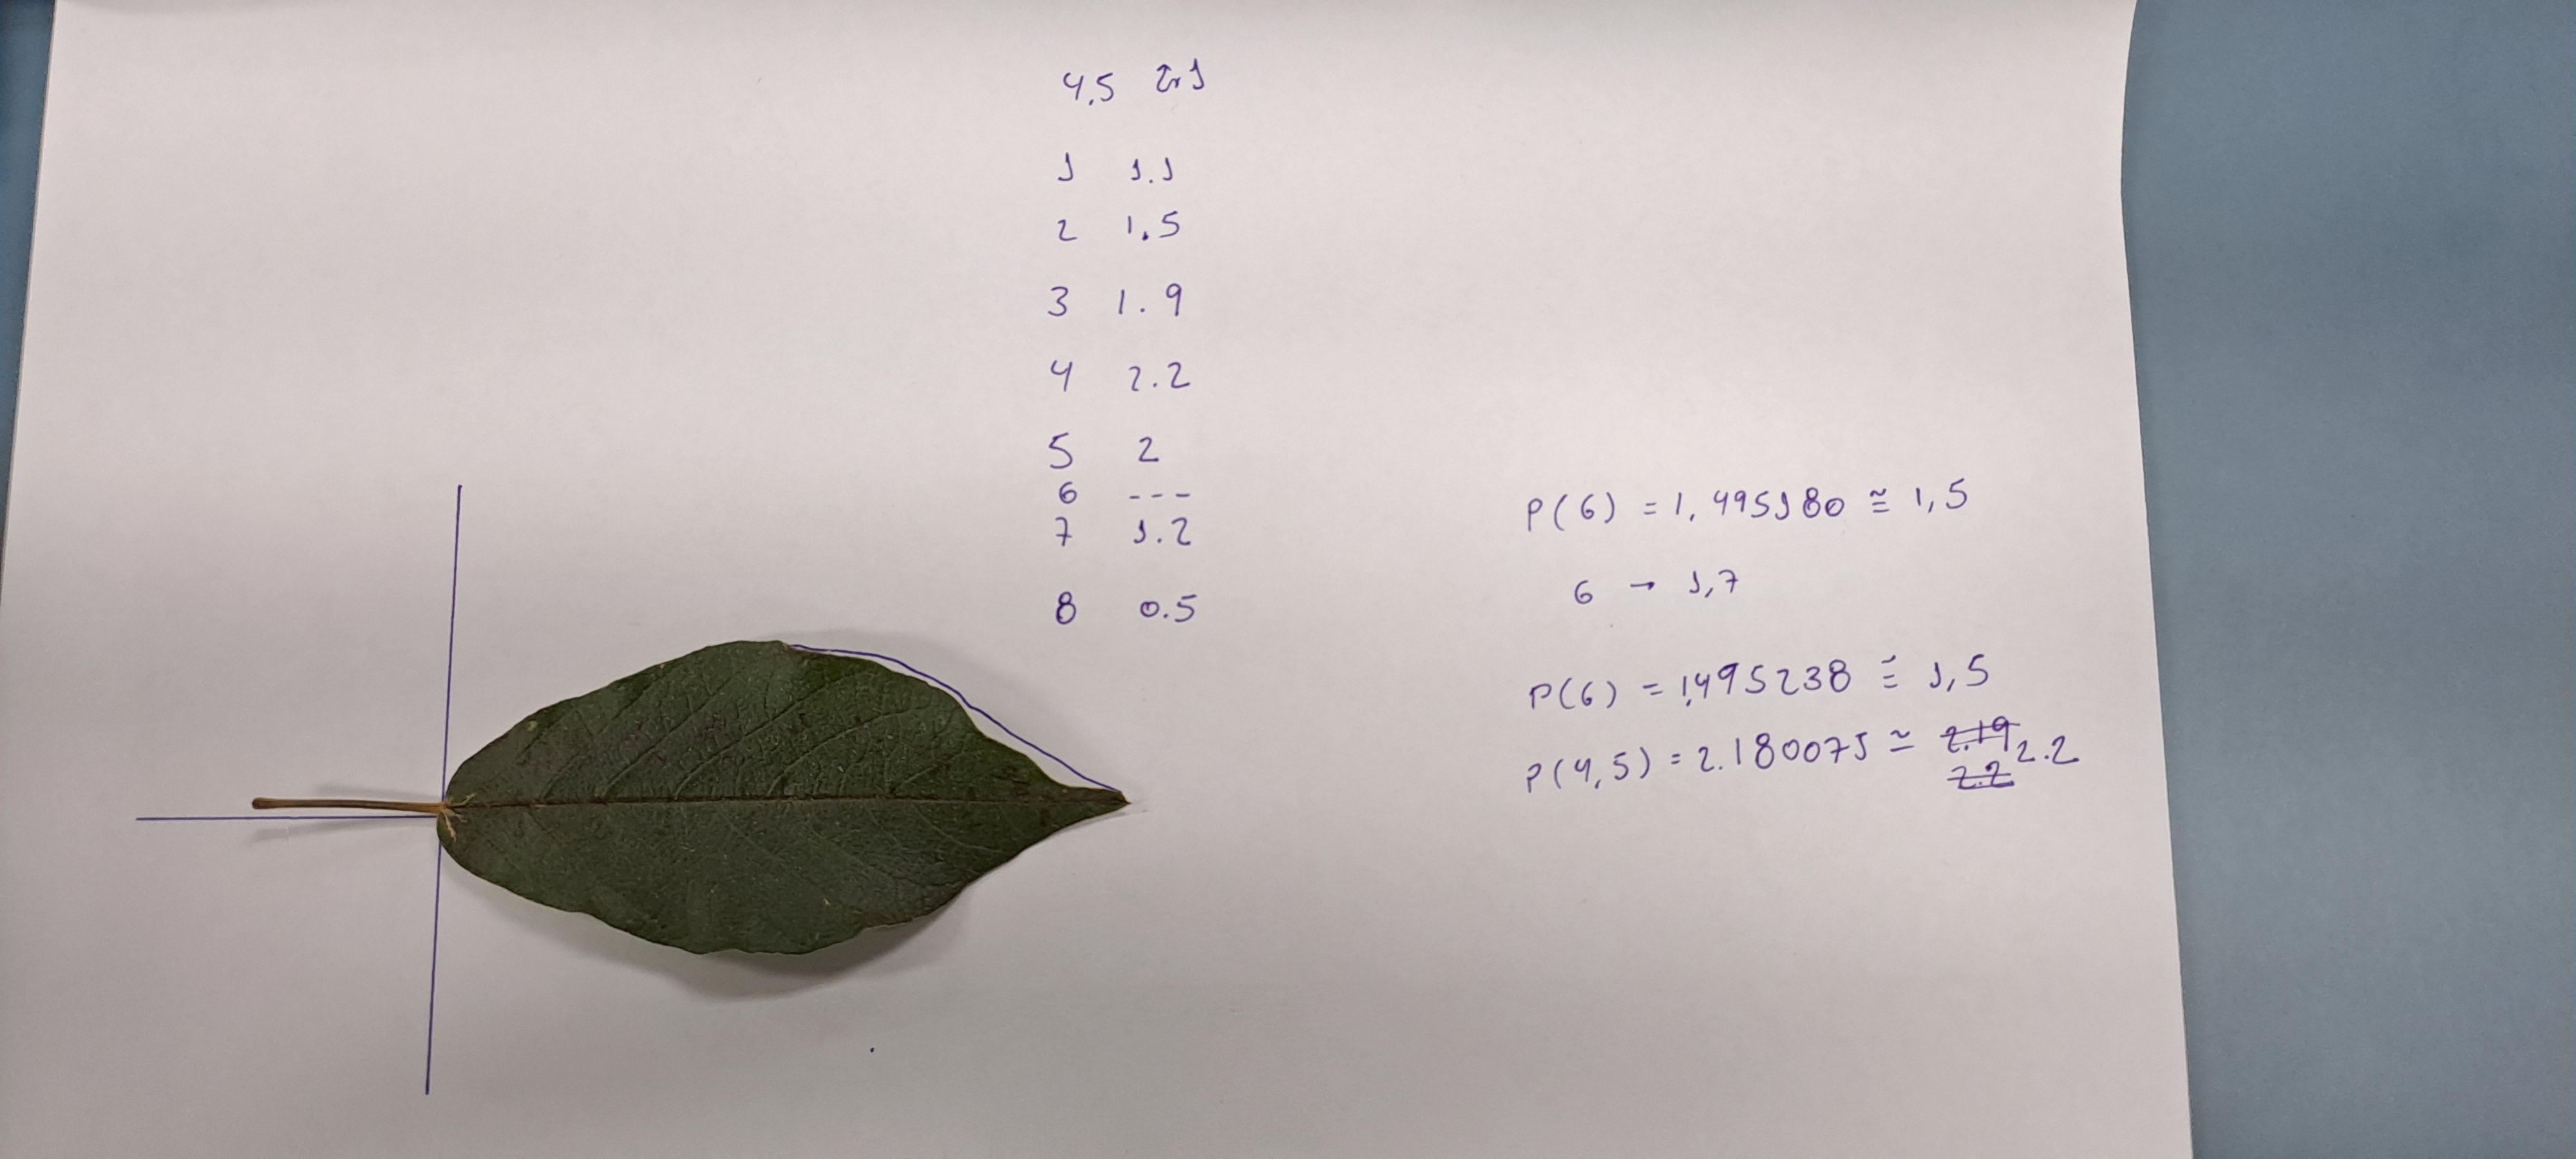 4,5 2,1
1 1.1
2 1.5
3 1.9
4 2.2
5 2
6 ---
7 1.2
8 0.5
P(6) = 1,495180 ≅ 1,5
6 → 1,7
P(6) = 1,495238 ≅ 1,5
P(4,5) = 2.180071 ≅ 2.19 2.2
2.2